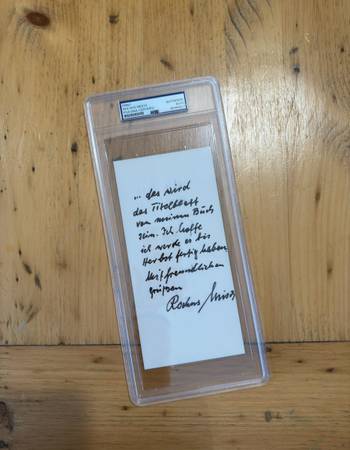 ... das wird
das Titelblatt
von meinem Buch
sein. Ich hoffe
ich werde es bis
Herbst fertig haben
Mit freundlichen
grüßen
Rochus Misch